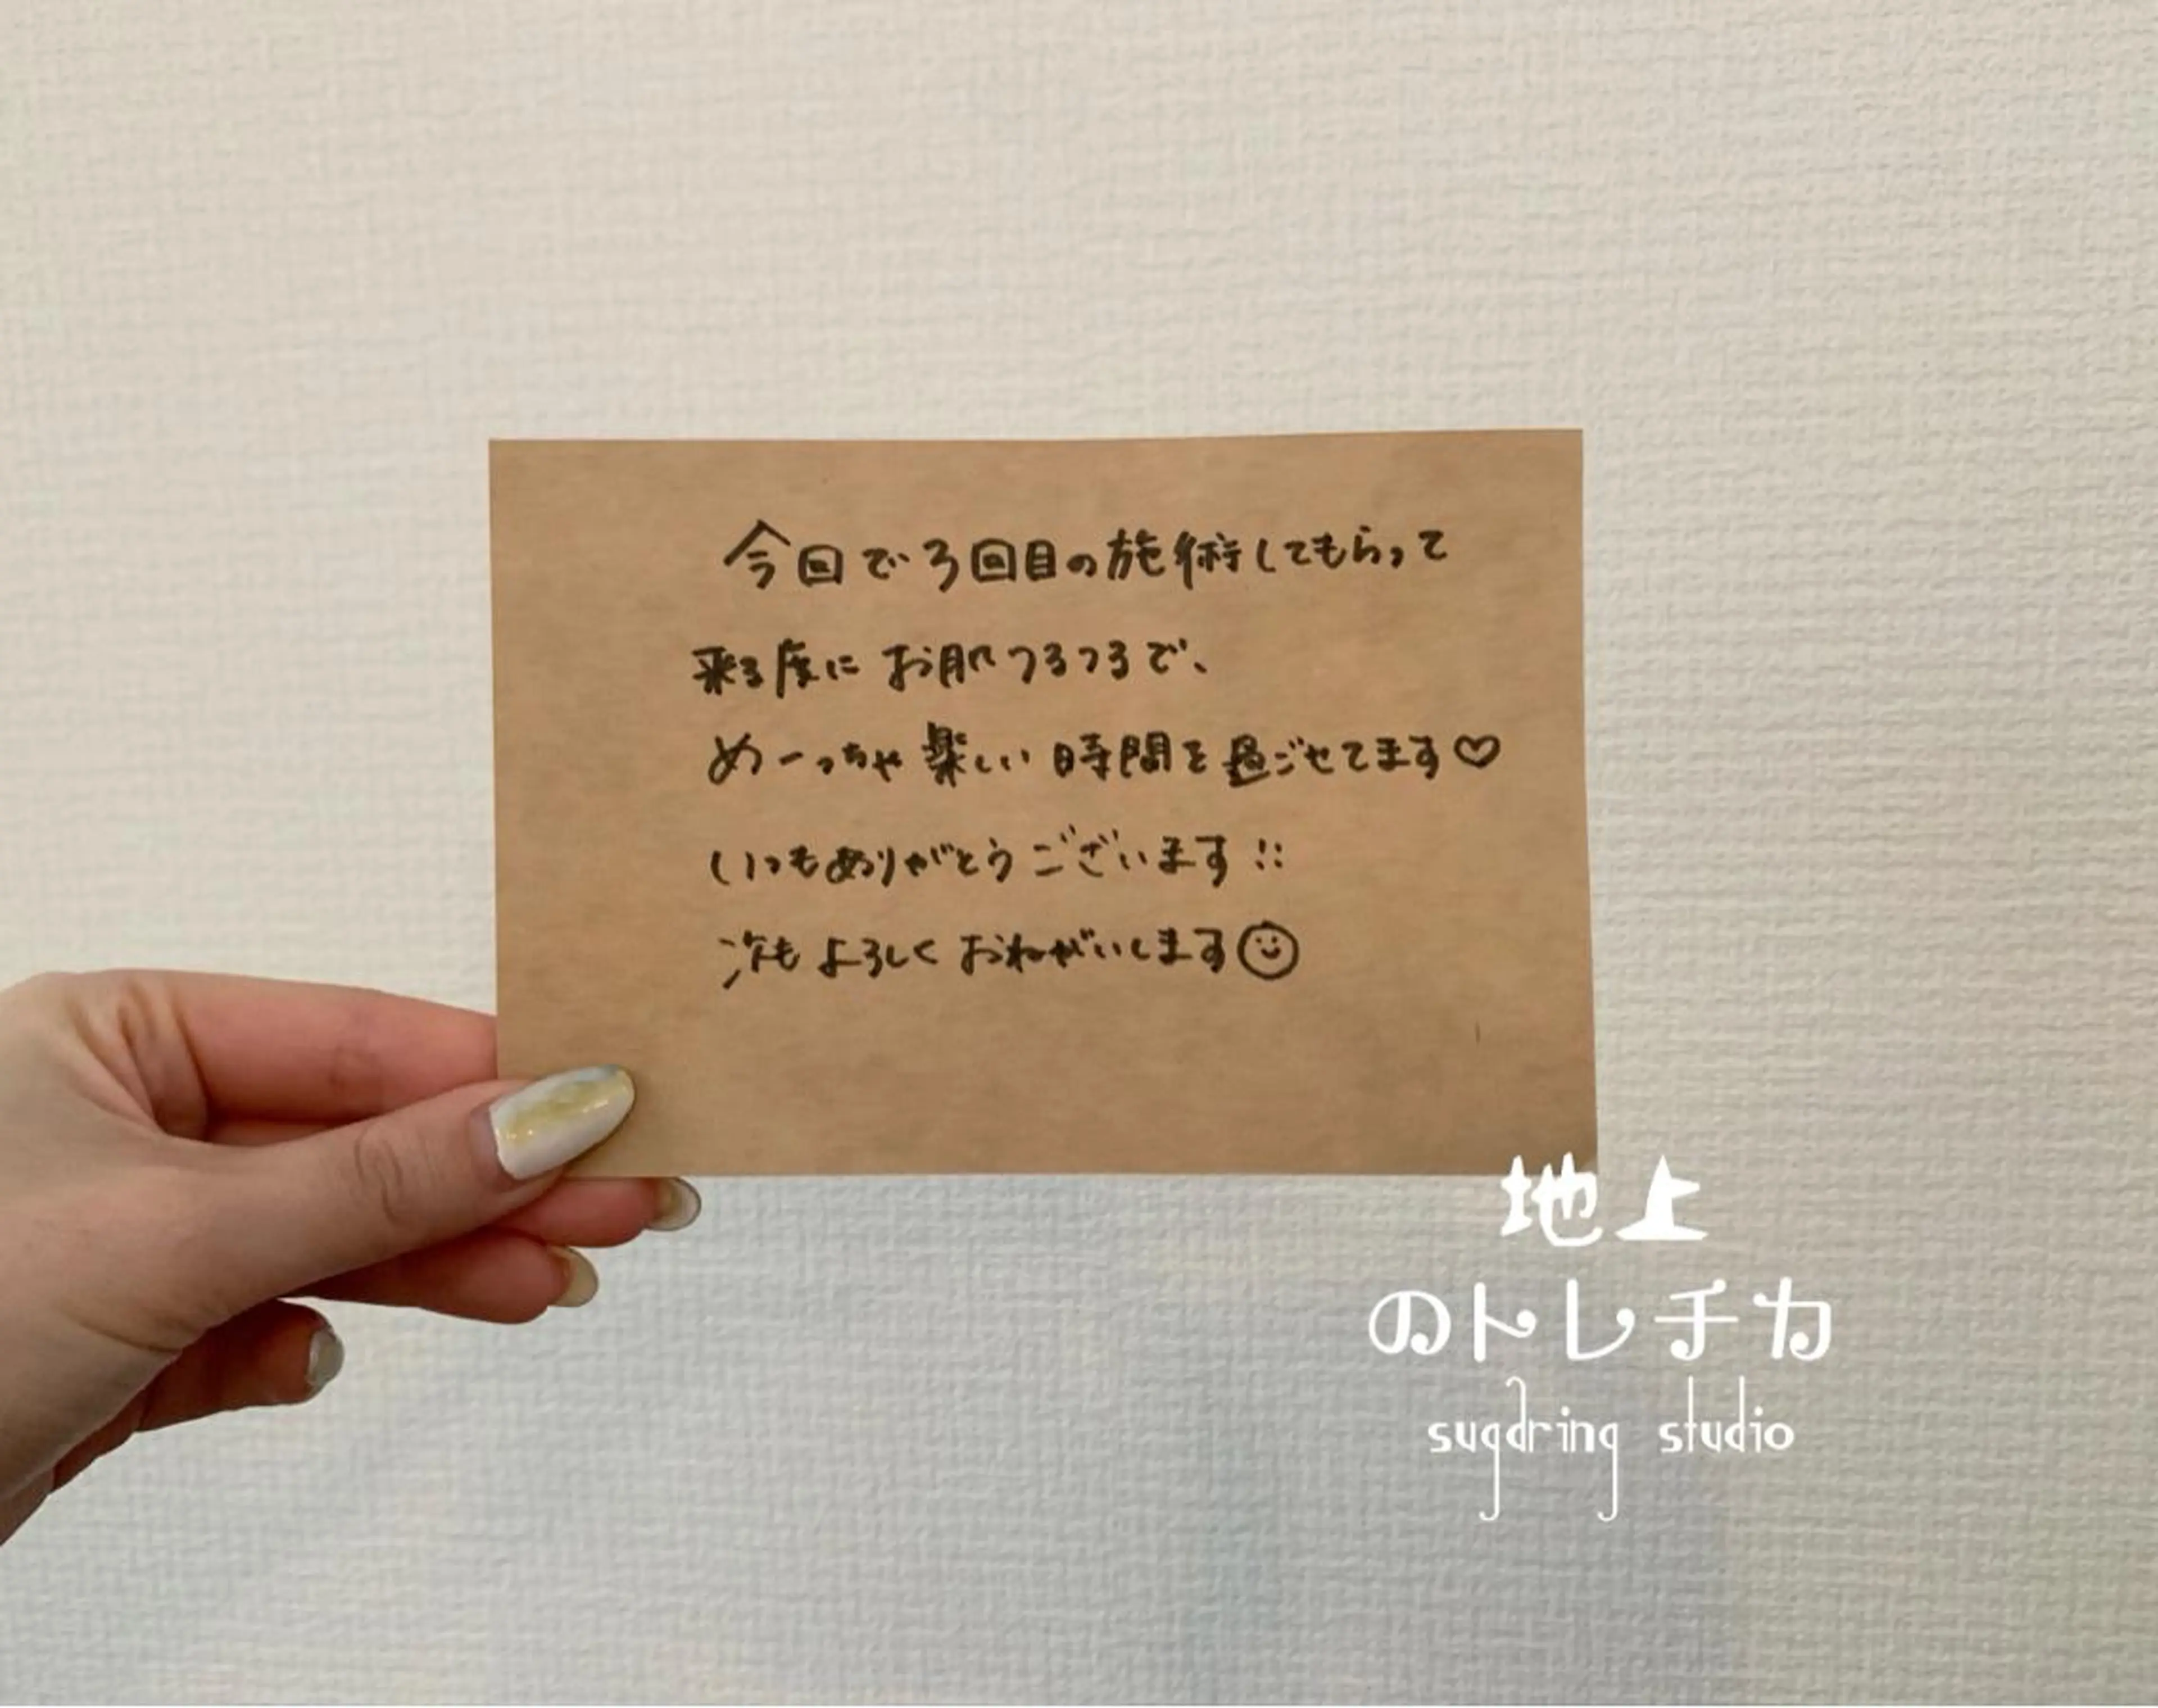 今回で3回目の施術してもらって
来る度に お肌つるつるで、
めーっちゃ楽しい時間を過ごせてます♡
いつもありがとうございます!!
次もよろしくおねがいします☺
地上
のトレチカ
sugaring studio